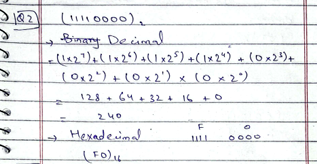 Q2 (11110000)₂
→ Binary Decimal
=(1x2⁷)+(1x2⁶)+(1x2⁵)+(1x2⁴)+(0x2³)+
(0x2²)+(0x2¹)x(0x2⁰)
= 128 + 64 + 32 + 16 + 0
= 240
→ Hexadecimal F 0
1111 0000
(F0)₁₆